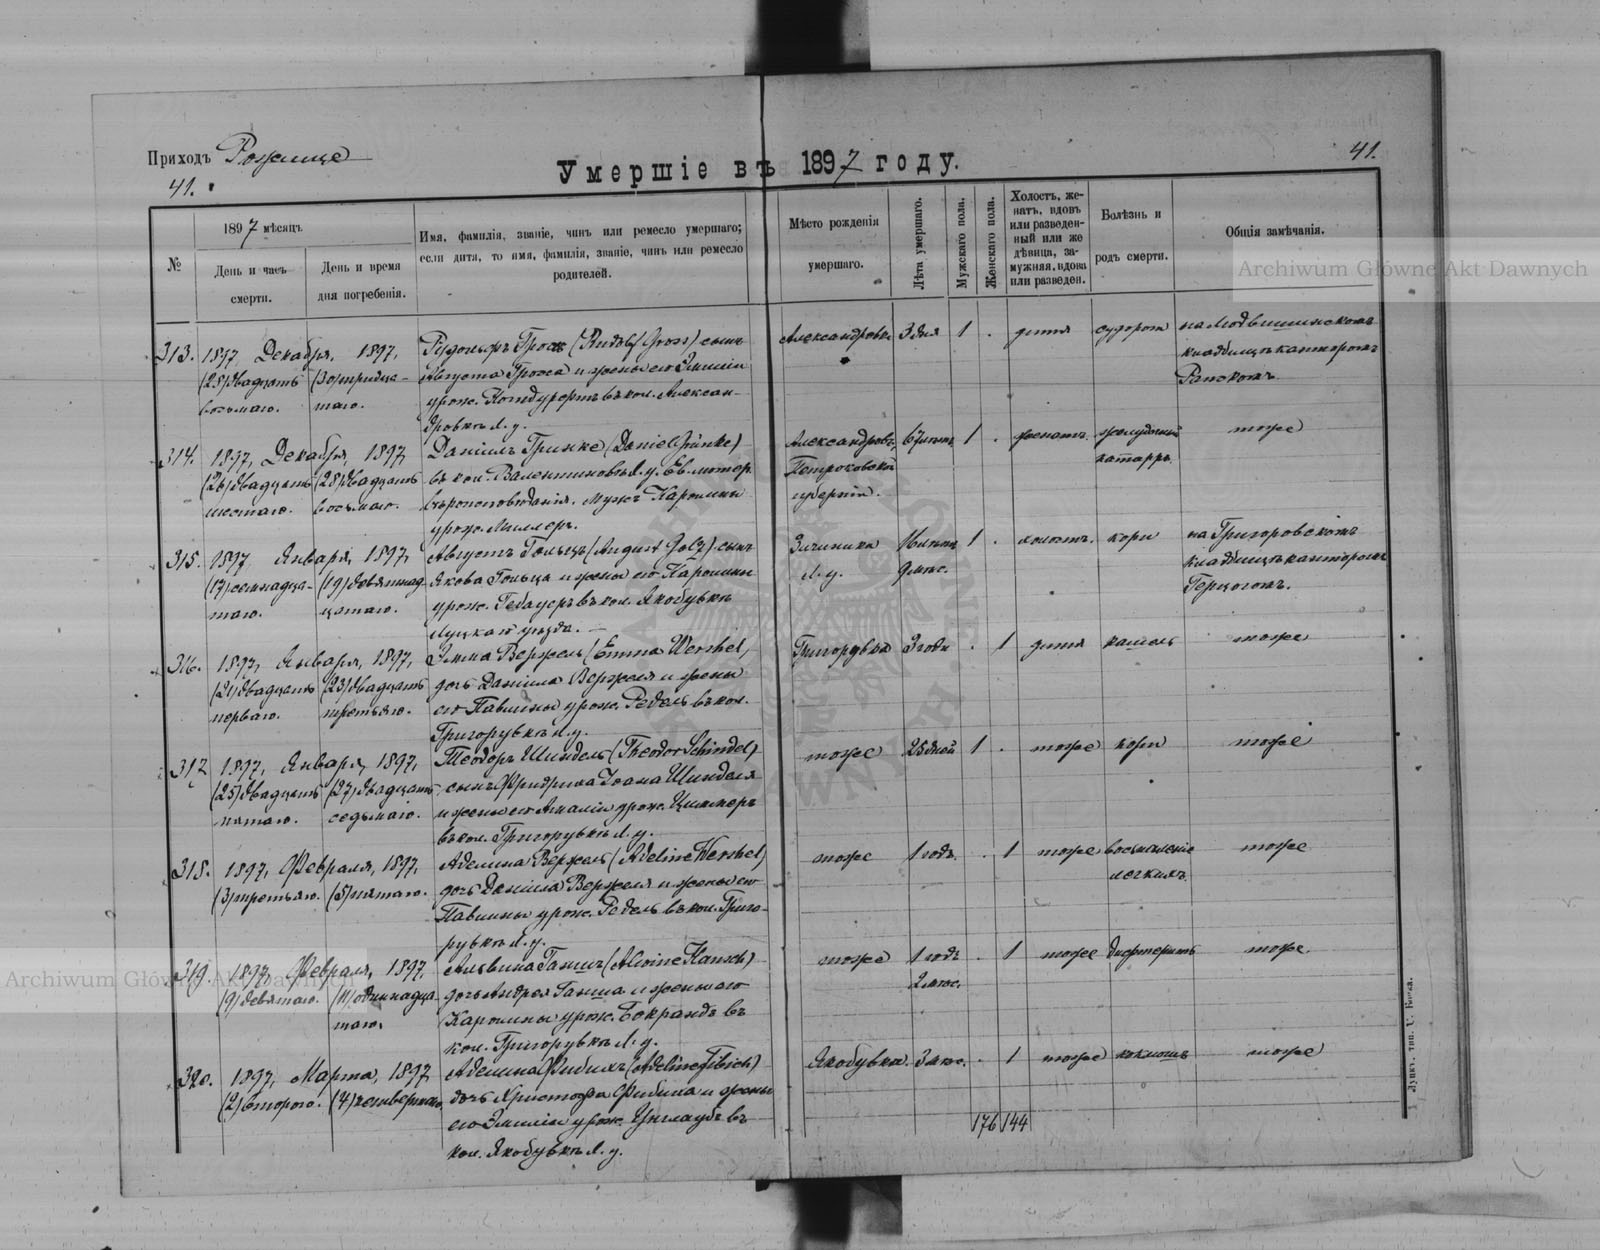 Приходъ Рожище
Умершіе въ 1897 году.
41.
41.
№
1897 мѣсяцъ
День и часъ
смерти.
День и время
дня погребенія.
Имя, фамилія, званіе, чинъ или ремесло умершаго;
если дитя, то имя, фамилія, званіе, чинъ или ремесло
родителей.
Мѣсто рожденія
умершаго.
Лѣта умершаго.
Мужскаго пола.
Женскаго пола.
Холостъ, же-
натъ, вдовъ
или разведен-
ный или же
дѣвица, за-
мужняя, вдова
или разведен.
Болѣзнь и
родъ смерти.
Общія замѣчанія.
313.
1897 Декабря, 1897,
(28) двадцать (30) тридца-
восьмаго. таго.
Рудольфъ Гросъ (Rudolf Gross) сынъ
Августа Гроса и жены его Эмиліи
урож. въ кол. Алексан-
дровкѣ Л. у.
Александровка 3 дня 1 . дитя судорога
кладбищѣ канторомъ
314.
1897, Декабря, 1897,
(26) двадцать (28) двадцать
шестаго. восьмаго.
Даніилъ Гринке (Daniel Grünke)
въ кол. Валентиновкѣ Л. у. Ев. лютер.
вѣроисповѣданія. Мужъ Каролины
урож. Миллеръ.
Александровъ,
Петроковской
губерніи.
67 лѣтъ 1 . женатъ. желудочный
катарръ.
тоже
315.
1897, Января, 1897,
(17) семнадца- (19) девятнад-
таго. цатаго.
Августъ Гольцъ (August Golz) сынъ
Якова Гольца и жены его Каролины
урож. Гебауеръ въ кол. Якобувкѣ
Луцкаго уѣзда.
Л. у.
16 лѣтъ
9 мѣс.
1 . холостъ. кори
на Григоровскомъ
кладбищѣ канторомъ
Герцогомъ.
316.
1897, Января, 1897,
(21) двадцать (23) двадцать
перваго. третьяго.
Эмма Вержель (Emma Wershel)
дочь Даніила Вержеля и жены
его Павлины урож. Редель въ кол.
Григорувкѣ Л. у.
Григорувка 3 года . 1 дитя кашель тоже
317
1897, Января, 1897,
(25) двадцать (27) двадцать
пятаго. седьмаго.
Теодоръ Шиндель (Theodor Schindel)
сынъ Фридриха Іоана Шинделя
и жены его Амаліи урож. Циммеръ
въ кол. Григорувкѣ Л. у.
тоже 25 дней 1 . тоже кори тоже
318.
1897, Февраля, 1897,
(3) третьяго. (5) пятаго.
Аделина Вержель (Adeline Wershel)
дочь Даніила Вержеля и жены его
Павлины урож. Редель въ кол. Григо-
рувкѣ Л. у.
тоже 1 годъ. . 1 тоже воспаленіе
легкихъ
тоже
319.
1897, Февраля, 1897,
(9) девятаго. (11) одиннадца-
таго.
Альвина Ганшъ (Alwine Hansch)
дочь Андрея Ганша и жены его
Каролины урож. Бокрандъ въ
кол. Григорувкѣ Л. у.
тоже 1 годъ
2 мѣс.
. 1 тоже дифтеритъ тоже.
320.
1897, Марта, 1897
(2) втораго. (4) четвертаго.
Аделина Фибихъ (Adeline Fibich)
дочь Христофа Фибиха и жены
его Эмиліи урож. Унглаубъ въ
кол. Якобувкѣ Л. у.
Якобувка. 3 мѣс. . 1 тоже коклюшъ тоже
176 144
Archiwum Główne Akt Dawnych
Archiwum Główne Akt Dawnych